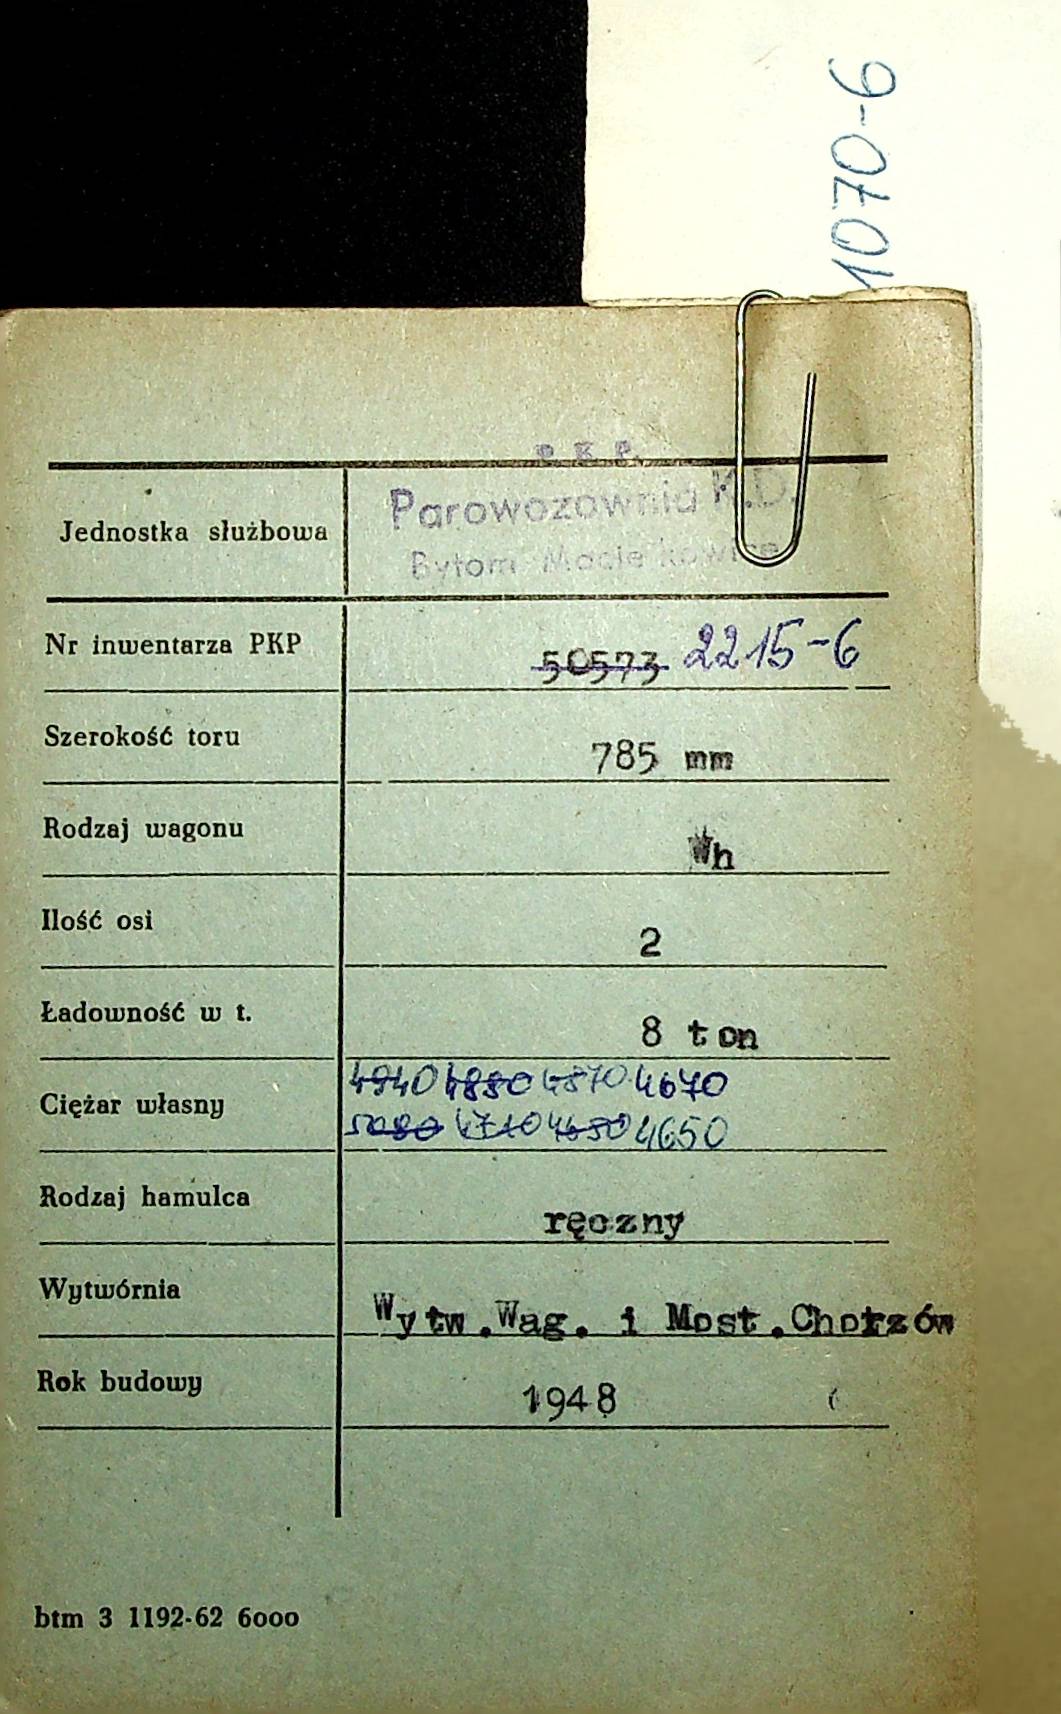 1070-6
P. K. P.
Parowozownia K.D.
Jednostka służbowa
Bytom Maciejkowice
Nr inwentarza PKP 50573 2215-6
Szerokość toru 785 mm
Rodzaj wagonu Wh
Ilość osi 2
Ładowność w t. 8 ton
4940 4880 4870 4670
Ciężar własny
5080 4710 4650
Rodzaj hamulca ręczny
Wytwórnia Wytw.Wag. i Most.Chorzów
Rok budowy 1948
btm 3 1192-62 6000